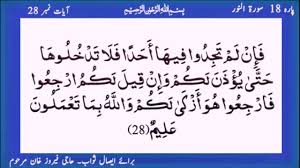 پارہ 18 سورۃ النور
بِسْمِ اللّٰهِ الرَّحْمٰنِ الرَّحِيْمِ
آیات نمبر 28
فَاِنْ لَّمْ تَجِدُوْا فِيْهَاۤ اَحَدًا فَلَا تَدْخُلُوْهَا
حَتّٰى يُؤْذَنَ لَكُمْ وَاِنْ قِيْلَ لَكُمُ ارْجِعُوْا
فَارْجِعُوْا هُوَ اَزْكٰى لَكُمْ وَاللّٰهُ بِمَا تَعْمَلُوْنَ
عَلِيْمٌ (28)
برائے ایصال ثواب۔ حاجی فیروز خان مرحوم